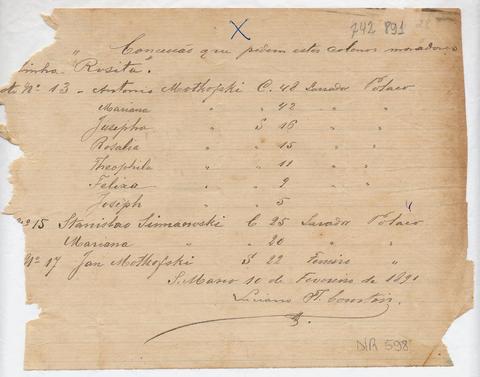 X
742 891
" Concessões que pedem estes colonos moradores
linha "Rosita".
Nº 13 - Antonio Mothofski C. 48 Lavrador Polaco
Mariana " " 42 " "
Josepha " S 16 " "
Rosalia " " 15 " "
Theophila " " 11 " "
Felixa " " 9 " "
Joseph " " 5
Nº 15 Stanislao C 25 Lavrador Polaco
Mariana " " 20 " "
Nº 17 Jan Mothofski S 22 Ferreiro "
S. Marco 10 de Fevereiro de 1891
Luciano
NR 598